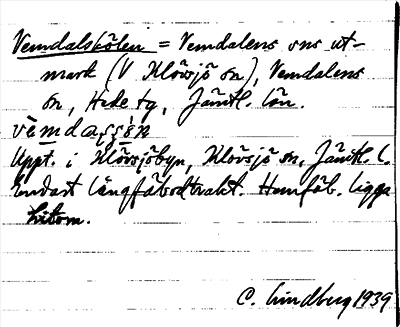 Vemdalsbölen = Vemdalens sns ut-
mark (V Klövsjö sn), Vemdalens
sn, Hede tg, Jämtl. län.
vèmdaşşèn
Uppt. i Klövsjöbyn, Klövsjö sn, Jämtl. l.
Endast långfäbodtrakt. Hemfäb. ligga
hitom.
C. Lindberg 1939